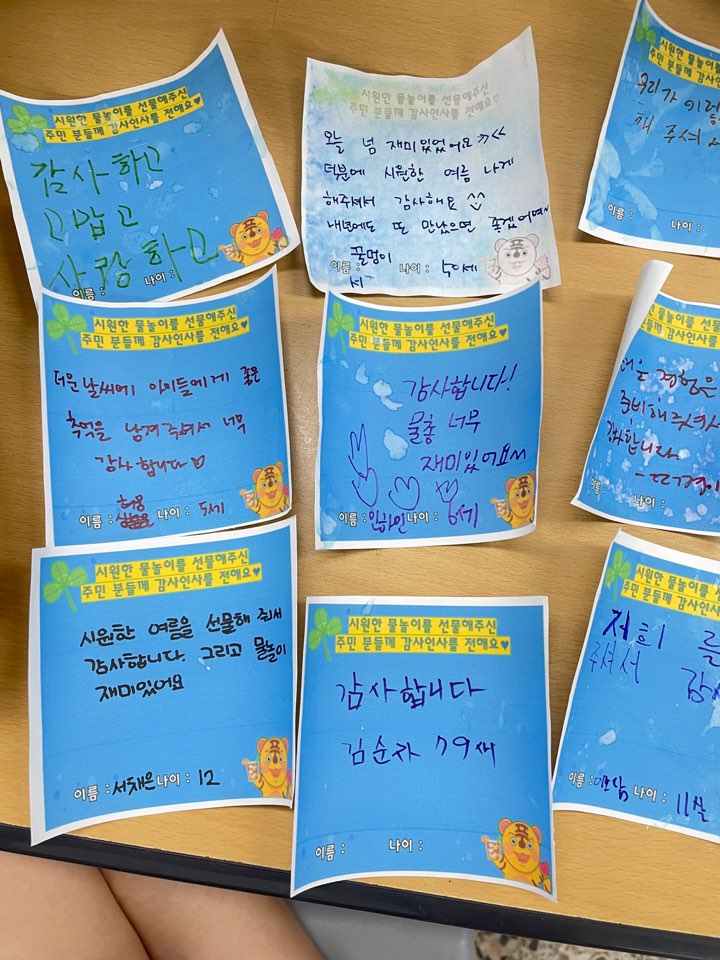 시원한 물놀이를 선물해주신
주민 분들께 감사인사를 전해요♥
감사하고
고맙고
사랑하고
이름 :
나이 :
시원한 물놀이를 선물해주신
주민 분들께 감사인사를 전해요♥
오늘 넘 재미있었어요 >><<
더분에 시원한 여름 나게
해주셔서 감사해요 ^^
내년에도 또 만났으면 좋겠어여~
꿀멍이
이름 : 나이 :
시원한
주민 분들께
우리가 이렇
해 주셔서
이름 : 나이 :
시원한 물놀이를 선물해주신
주민 분들께 감사인사를 전해요♥
더운 날씨에 아이들에게 좋은
추억을 남겨 주셔서 너무
감사합니다 ♡
이름 : 나이 : 5세
시원한 물놀이를 선물해주신
주민 분들께 감사인사를 전해요♥
감사합니다!
물총 너무
재미있어요~
이름 : 안하인 나이 : 6세
물놀이를 선
분들께 감사인
경험은
준비해주셔서
감사합니다.
시원한 물놀이를 선물해주신
주민 분들께 감사인사를 전해요♥
시원한 여름을 선물해 줘서
감사합니다. 그리고 물놀이
재미있어요
이름 : 서채은 나이 : 12
시원한 물놀이를 선물해주신
주민 분들께 감사인사를 전해요♥
감사합니다
김순자 79새
이름 : 나이 :
시원한 물놀이를 선
주민 분들께 감사인
저희 를
주셔서 감
이름 : 나이 : 11살